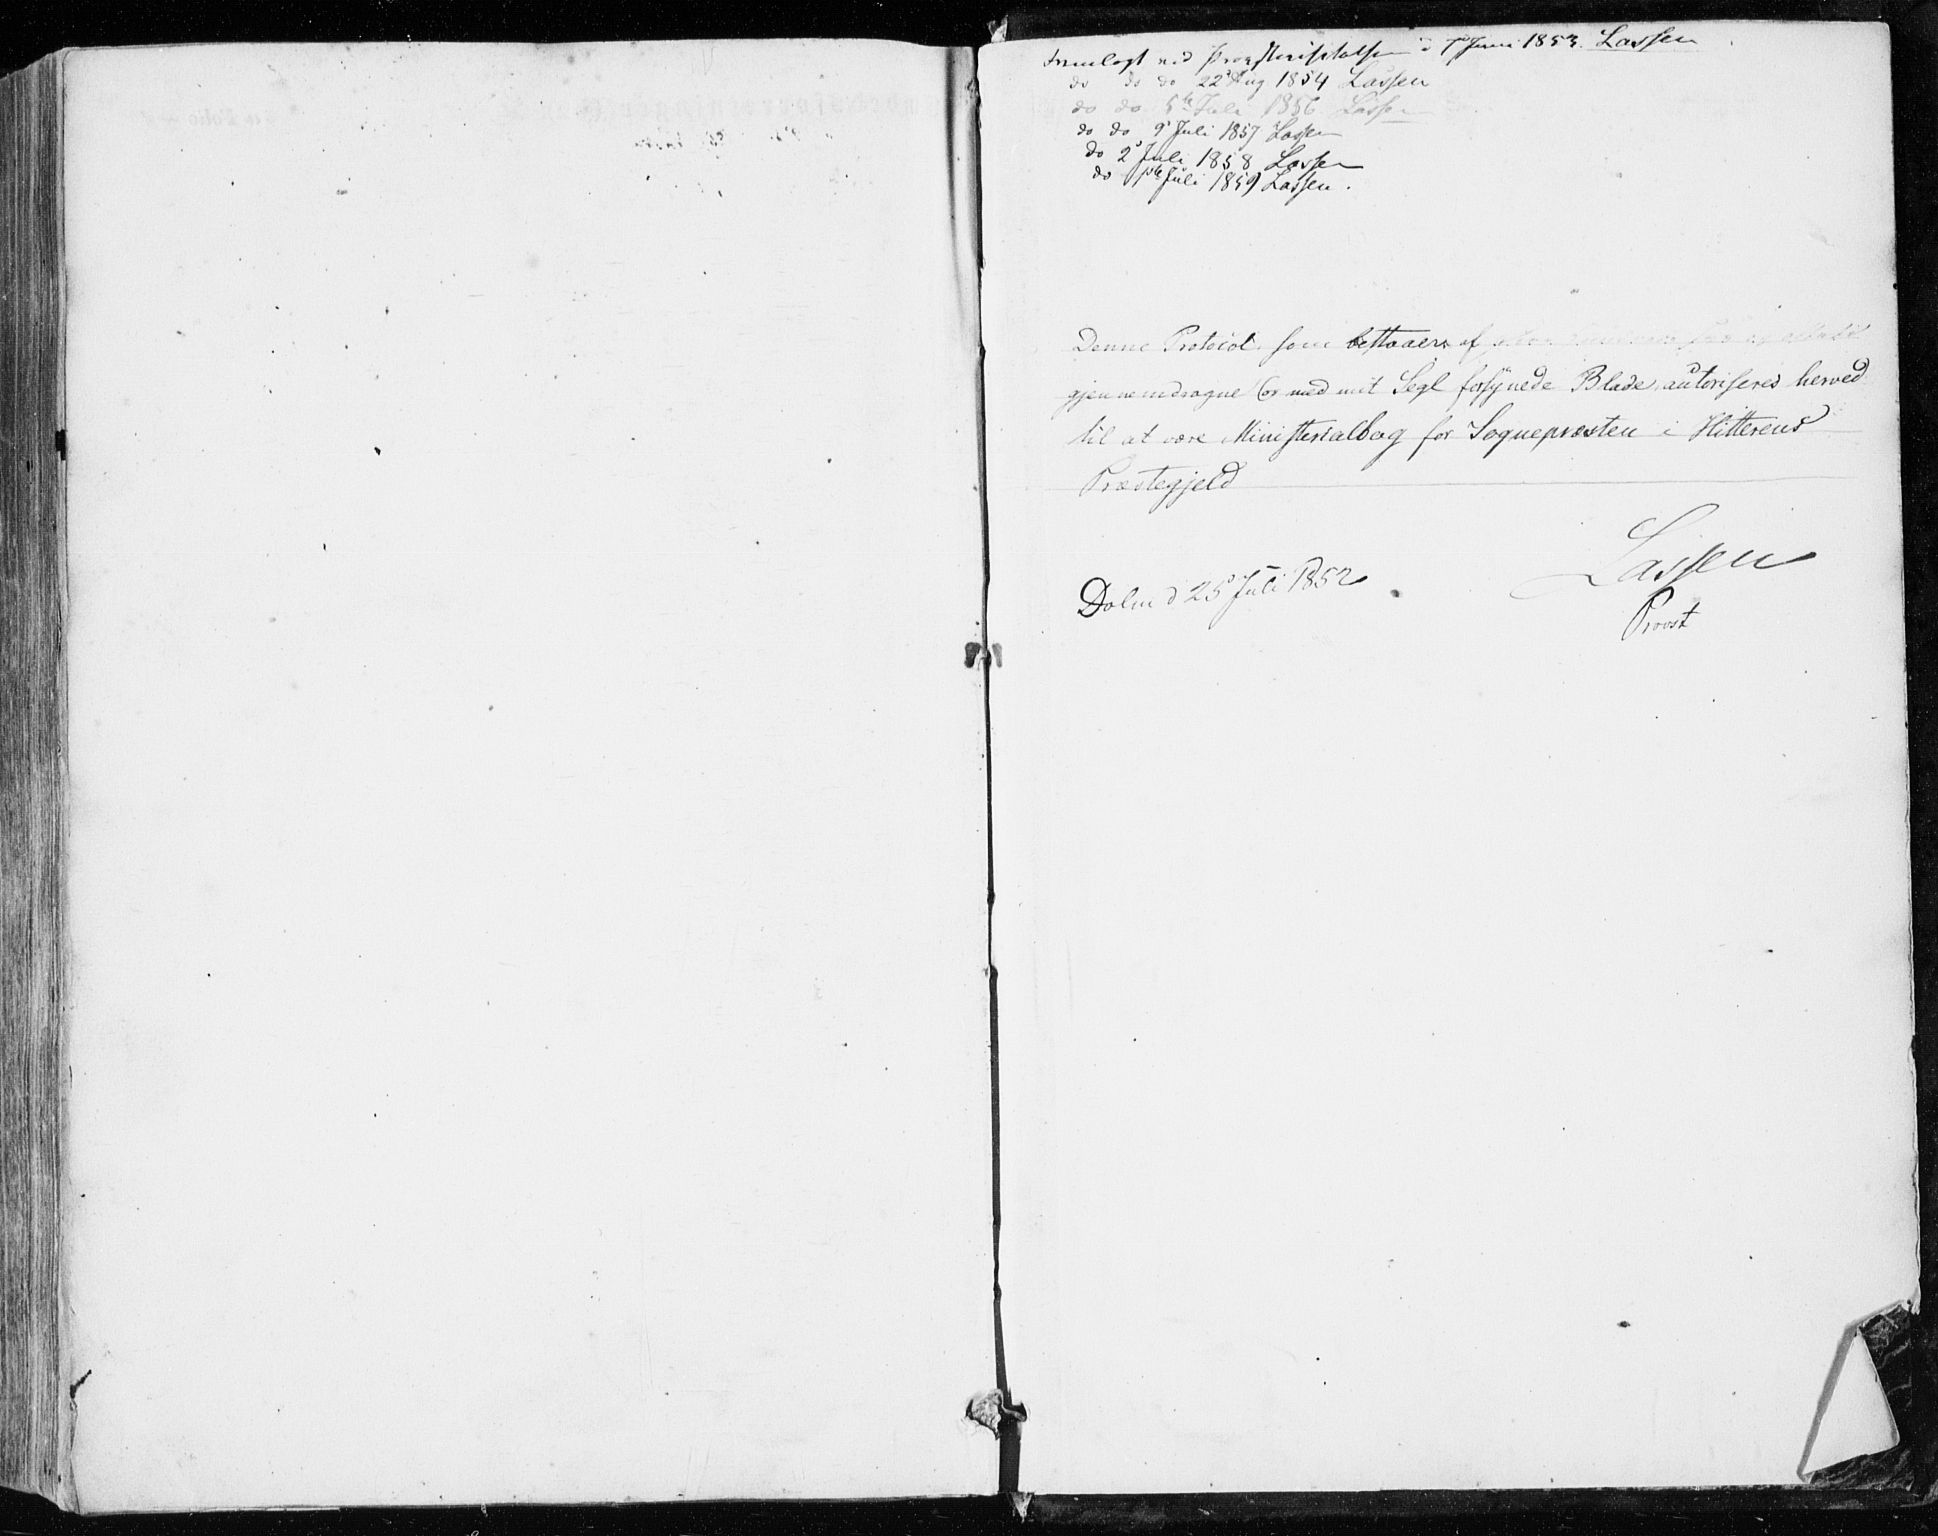 Fremlagt ved Provstevisitatsen d 7de Juni 1853. Lassen
do do do 22d Aug 1854 Lassen
do do 5te Juli 1856 Lassen
do do 9d Juli 1857 Lassen
do 2d Juli 1858 Lassen
do 1ste Juli 1859 Lassen.
Denne Protocol, som bestaaer af
gjennemdragne og med mit Segl forsynede Blade, autoriseres herved
til at være Ministerialbog for Sognepræsten i Hitterens
Præstegjeld
Lassen
Dolm d 25d Juli 1852
Provst